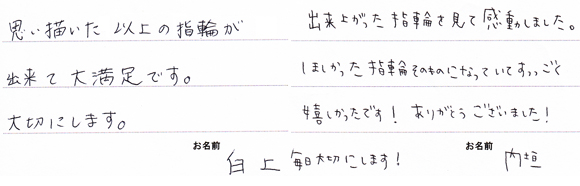 思い描いた以上の指輪が
出来て大満足です。
大切にします。
お名前
白上
出来上がった指輪を見て感動しました。
ほしかった指輪そのものになっていてすっごく
嬉しかったです！ ありがとうございました！
毎日大切にします！
お名前
内垣